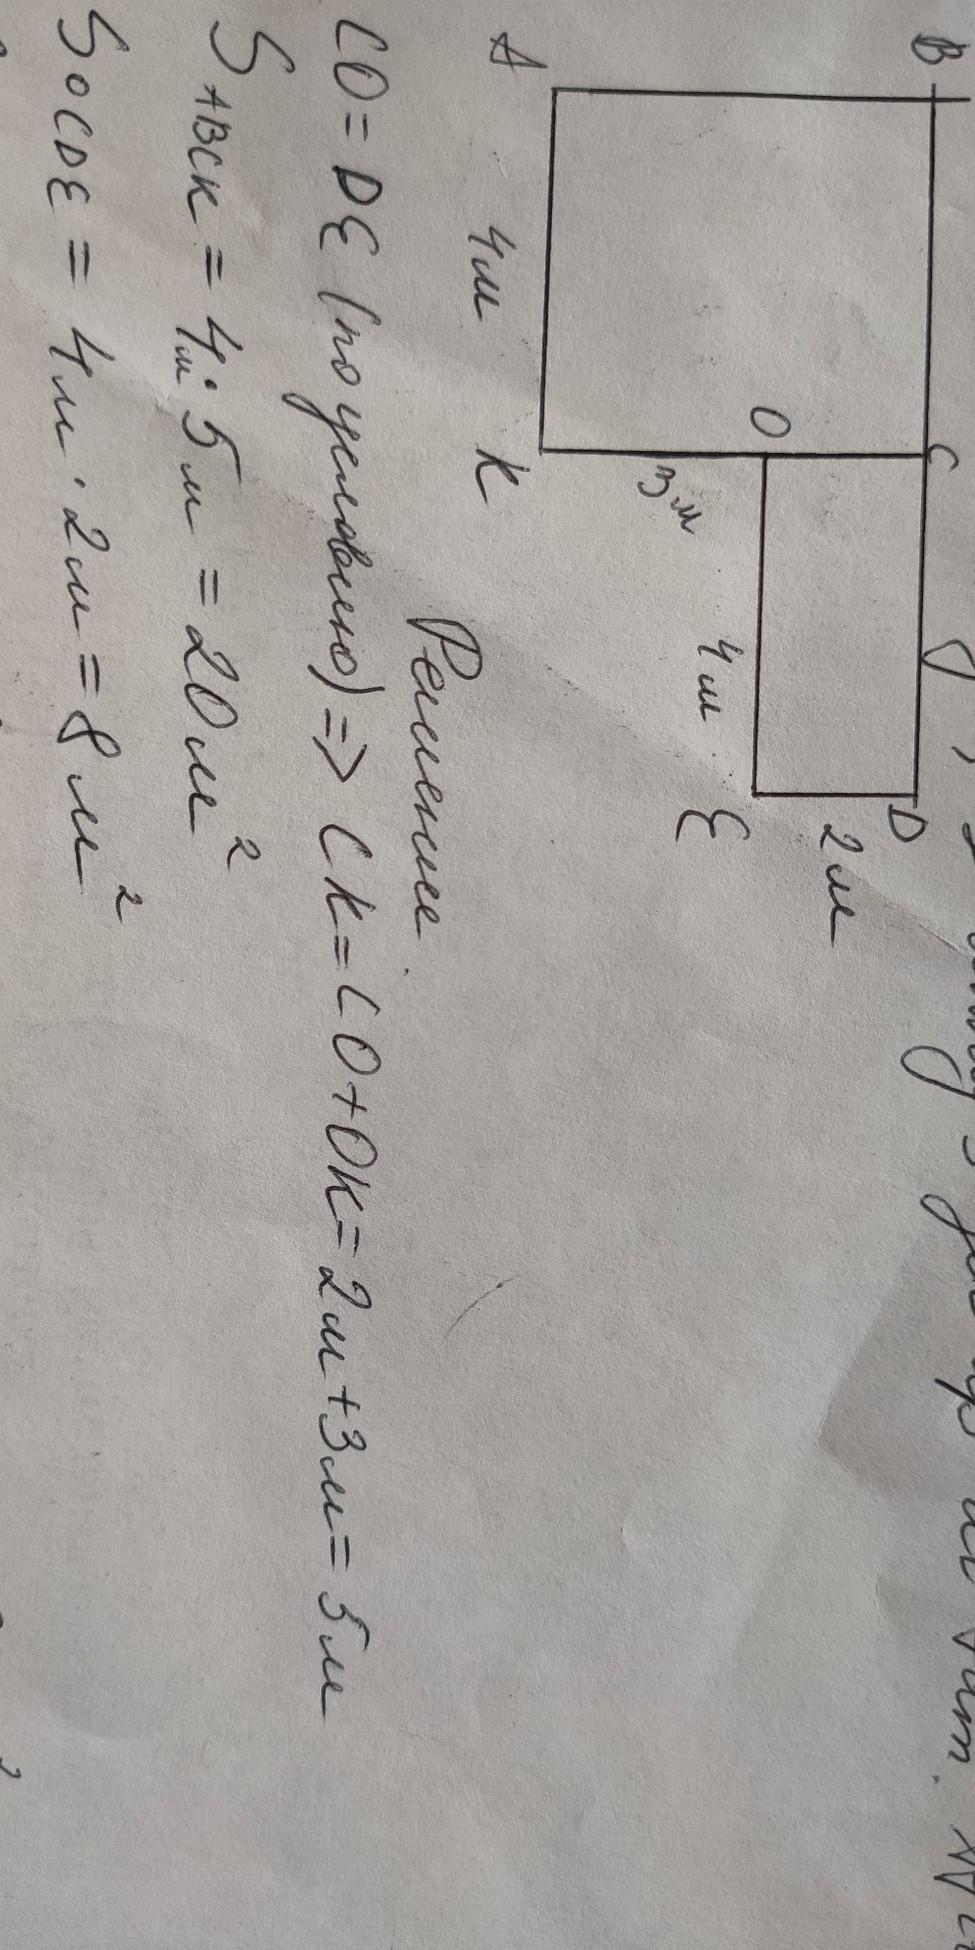 B C D
2м
O
3м 4м E
A 4м K
Решение.
CO = DE (по условию) => CK = CO + OK = 2м + 3м = 5м
S ABCK = 4м · 5м = 20м²
S OCDE = 4м · 2м = 8м²